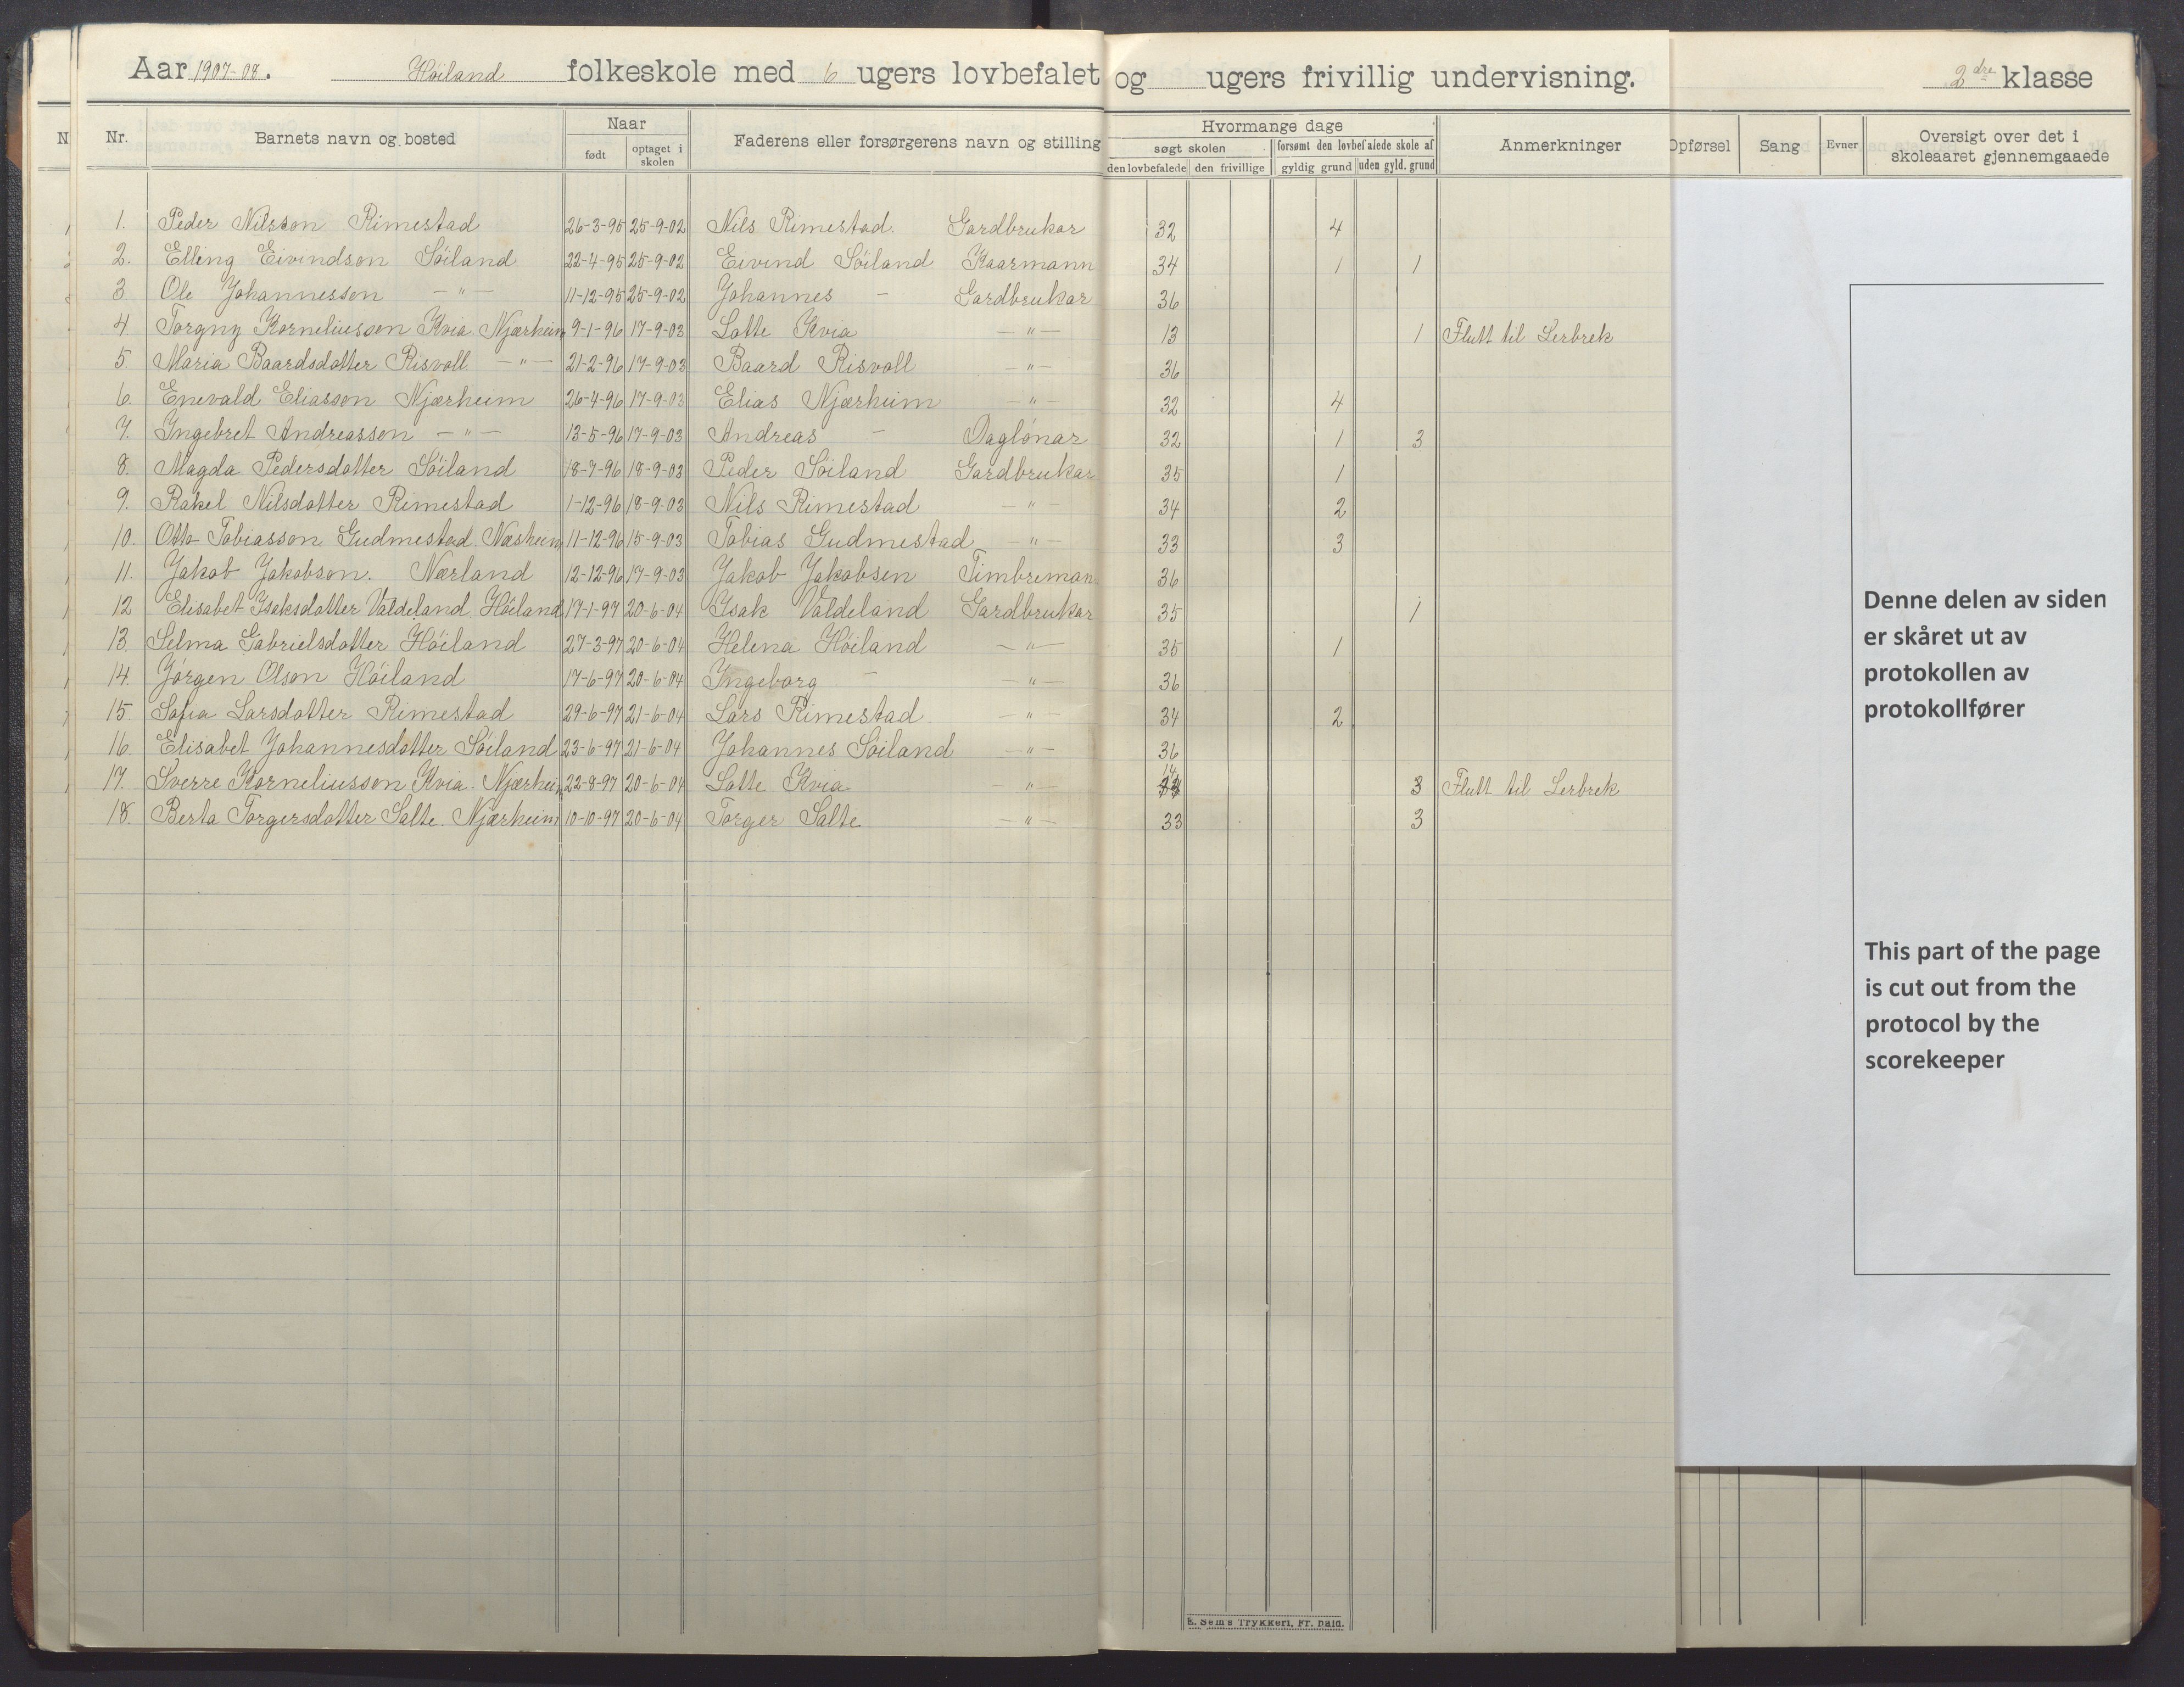 Aar 1907-08. Höiland folkeskole med 6 ugers lovbefalet og ugers frivillig undervisning. 2dre klasse
N Nr. Barnets navn og bosted Naar født optaget i skolen Faderens eller forsørgerens navn og stilling Hvormange dage søgt skolen den lovbefalede den frivillige forsømt den lovbefalede skole af gyldig grund uden gyld. grund Anmerkninger Opførsel Sang Evner Oversigt over det i skoleaaret gjennemgaaede
1. Peder Nilsson Rimestad 26-3-95 25-9-02 Nils Rimestad. Gardbrukar 32 4
2. Elling Eivindson Söiland 22-4-95 25-9-02 Eivind Söiland Kaarmann 34 1 1
3. Ole Johannesson -"- 11-12-95 25-9-02 Johannes - Gardbrukar 36
4. Torgny Korneliusson Kvia. Njærheim 9-1-96 17-9-03 Lotte Kvia -"- 13 1 Flutt til Lerbrek
5. Maria Baardsdatter Risvoll -"- 21-2-96 17-9-03 Baard Risvoll -"- 36
6. Enevald Eliasson Njærheim 26-4-96 17-9-03 Elias Njærheim -"- 32 4
7. Ingebret Andreasson -"- 13-5-96 17-9-03 Andreas - Daglönar 32 1 3
8. Magda Pedersdatter Söiland 18-7-96 18-9-03 Peder Söiland Gardbrukar 35 1
9. Rakel Nilsdatter Rimestad 1-12-96 18-9-03 Nils Rimestad -"- 34 2
10. Otto Tobiasson Gudmestad. Næsheim 11-12-96 15-9-03 Tobias Gudmestad -"- 33 3
11. Jakob Jakobson. Nærland 12-12-96 17-9-03 Jakob Jakobsen Timbreman 36
12 Elisabet Isaksdatter Valdeland. Höiland 17-1-97 20-6-04 Isak Valdeland Gardbrukar 35 1
13. Selma Gabrielsdatter Höiland 27-3-97 20-6-04 Helena Höiland -"- 35 1
14. Jörgen Olson Höiland 17-6-97 20-6-04 Ingeborg - -"- 36
15. Sofia Larsdatter Rimestad 29-6-97 21-6-04 Lars Rimestad -"- 34 2
16. Elisabet Johannesdatter Söiland 23-6-97 21-6-04 Johannes Söiland -"- 36
17. Sverre Korneliusson Kvia. Njærheim 22-8-97 20-6-04 Lotte Kvia -"- 14 3 Flutt til Lerbrek
18. Berta Torgersdatter Salte. Njærheim 10-10-97 20-6-04 Torger Salte -"- 33 3
Denne delen av siden
er skåret ut av
protokollen av
protokollfører
This part of the page
is cut out from the
protocol by the
scorekeeper
E. Sem's Trykkeri, Fr. hald.